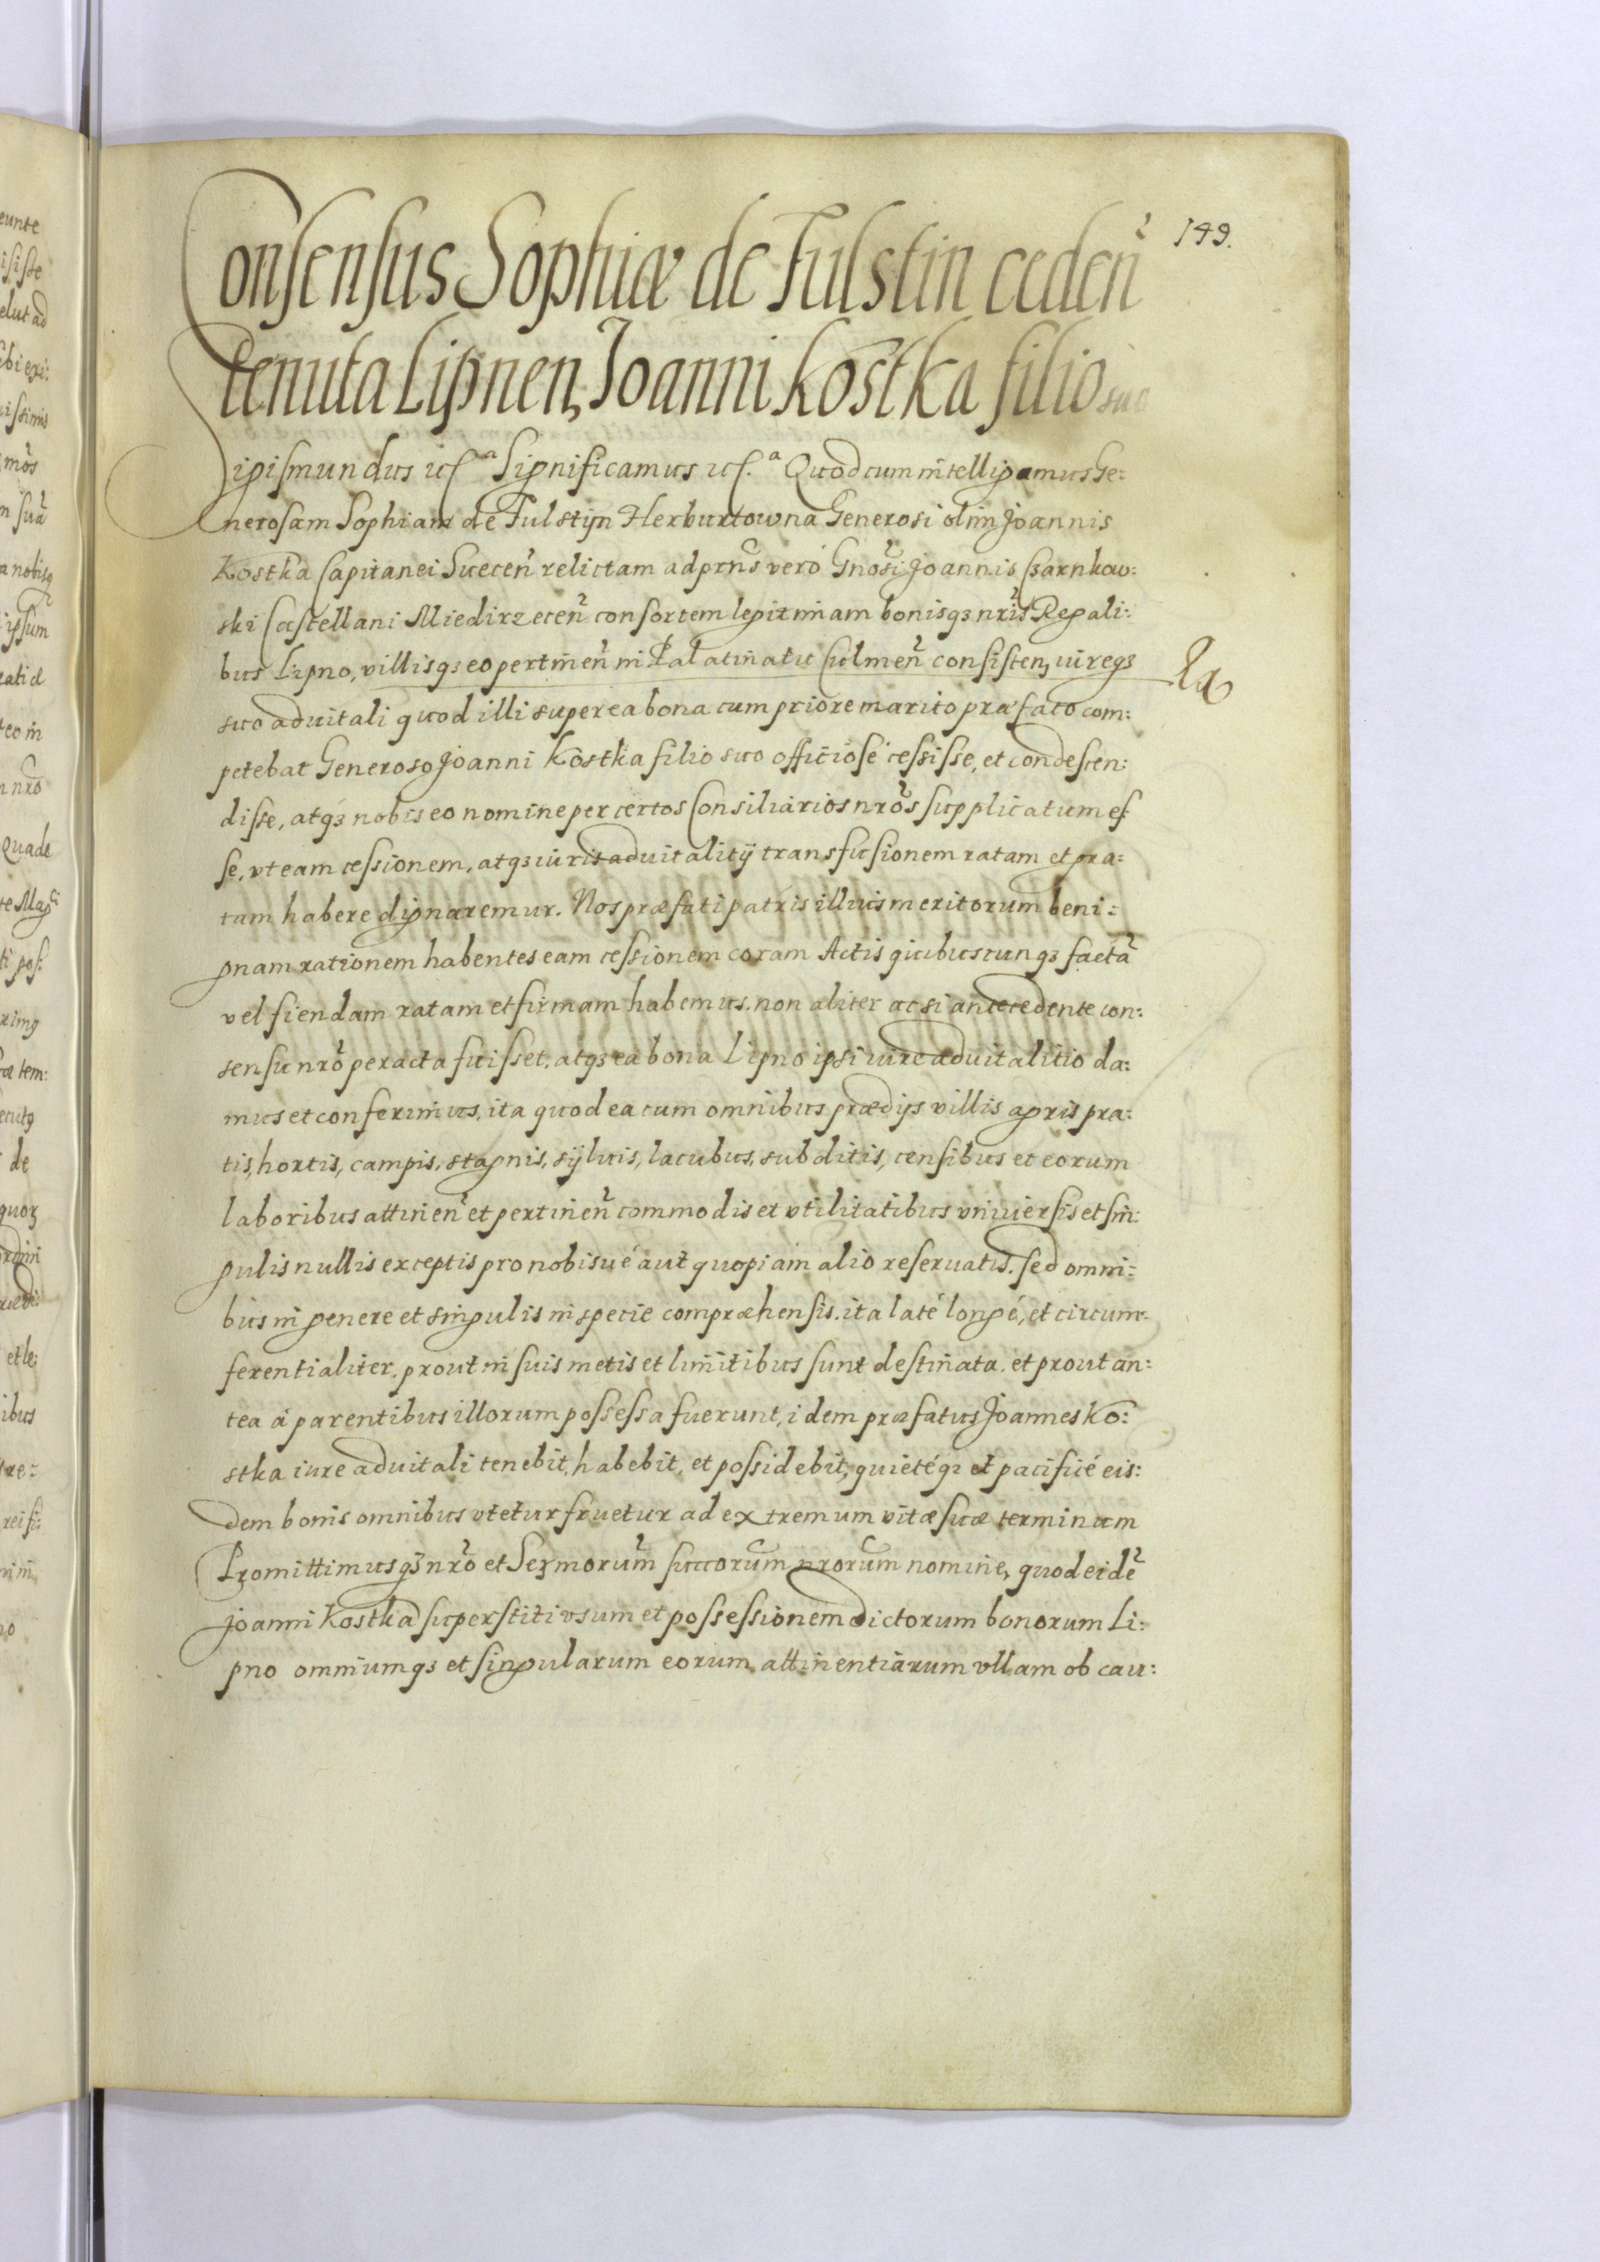 149.
Consensus Sophiæ de Fulstin ceden
tenuta Lipnen, Joanni Kostka filio suo
Sigismundus etc.a Significamus etc.a Quod cum intelligamus Ge:
nerosam Sophiam de Fulstyn Herburtowna Generosi olim Joannis
Kostka Capitanei Suecen relictam ad prns vero Gnosi Joannis Czarnkow:
ski Castellani Miedirzecen consortem legitimam bonisq3 nris Regali:
bus Lipno, villisq3 eo pertinen in Palatinatu Culmen consisten, iureq3
suo aduitali quod illi super ea bona cum priore marito præfato com:
petebat Generoso Joanni Kostka filio suo officiose cessisse, et condescen:
disse, atq3 nobis eo nomine per certos Consiliarios nros supplicatum es
se, vt eam cessionem, atq3 iuris aduitalitij transfusionem ratam et gra:
tam habere dignaremur. Nos præfati patris illius meritorum beni:
gnam rationem habentes eam cessionem coram Actis quibuscunq3 factã
vel fiendam ratam et firmam habemus. non aliter ac si antecedente con:
sensu nro peracta fuisset. atq3 ea bona Lipno ipsi iure aduitalitio da:
mus et conferimus, ita quod ea cum omnibus prædijs villis agris pra:
tis, hortis, campis, stagnis, sÿluis, lacubus, subditis, censibus et eorum
laboribus attinen et pertinen commodis et vtilitatibus vniuersis et sin:
gulis nullis exceptis pro nobisué aut quopiam alio reseruatis. sed omni:
bus in genere et singulis in specie compræhensis. ita laté longé, et circum:
ferentialiter, prout in suis metis et limitibus sunt destinata. et prout an:
tea á parentibus illorum possessa fuerunt, idem præfatus Joannes Ko:
stka iure aduitali tenebit, habebit, et possidebit, quietéq3 et pacificé eis:
dem bonis omnibus vtetur fruetur ad extremum vitæ suæ terminum
Promittimusq3 nro et Sermorum succorum nrorum nomine, quod eidē
Joanni Kostka superstiti vsum et possessionem dictorum bonorum Li:
pno omniumq3 et singularum eorum attinentiarum vllam ob cau: